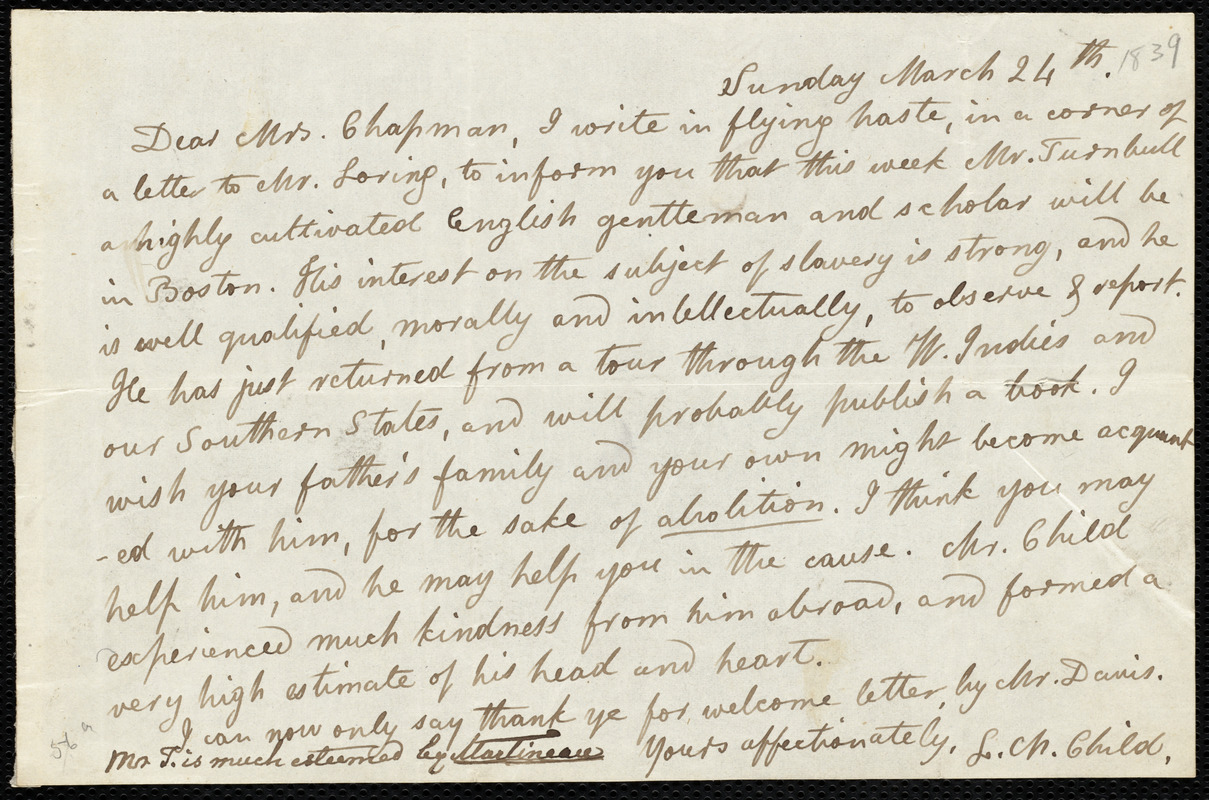 Sunday March 24th. 1839
Dear Mrs. Chapman, I write in flying haste, in a corner of
a letter to Mr. Loring, to inform you that this week Mr. Turnbull
a highly cultivated English gentleman and scholar will be
in Boston. His interest on the subject of slavery is strong, and he
is well qualified, morally and intellectually, to observe & report.
He has just returned from a tour through the W. Indies and
our Southern States, and will probably publish a book. I
wish your father's family and your own might become acquaint
-ed with him, for the sake of abolition. I think you may
help him, and he may help you in the cause. Mr. Child
experienced much kindness from him abroad, and formed a
very high estimate of his head and heart.
I can now only say thank ye for welcome letter, by Mr. Davis.
Yours affectionately, L. M. Child.
Mr T. is much esteemed by Martineau